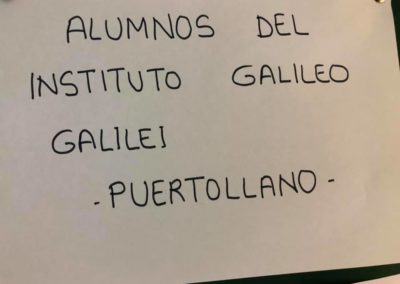 ALUMNOS DEL
INSTITUTO GALILEO
GALILEI
- PUERTOLLANO -